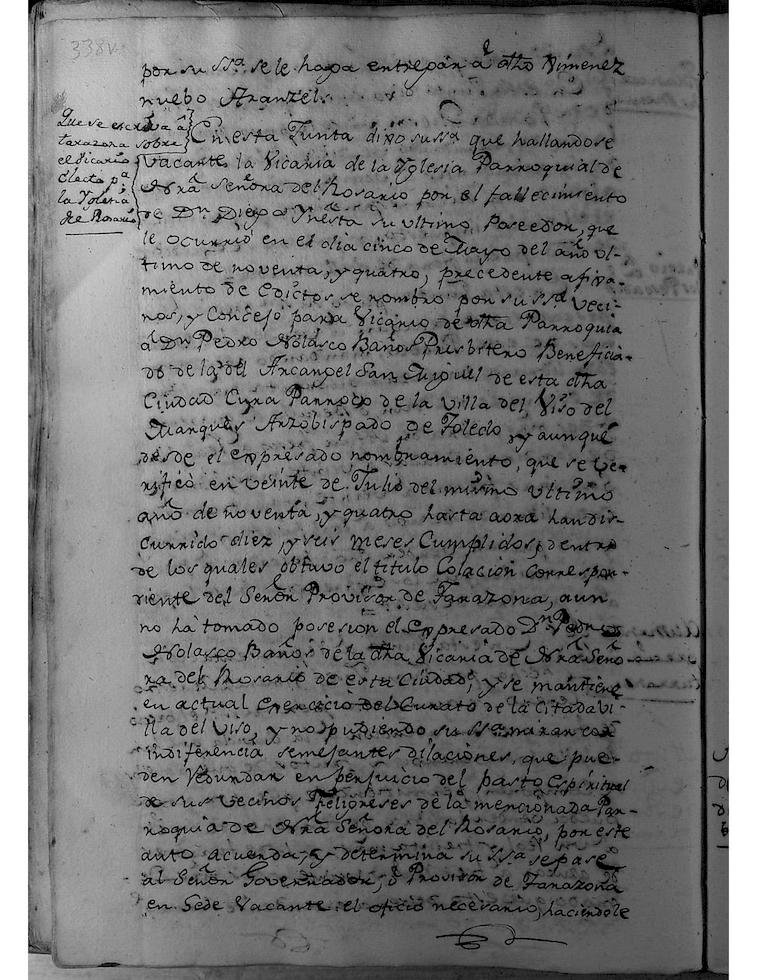 338v.
por su Ssª. se le haga entregar á dho Ximenez
nuebo Aranzel.
Que se escriva á
tarazona sobre
el vicario
electo pª
la Yglesia
de Rosario
En esta Junta dixo su Ssª que hallandose
vacante la Vicaria de la Yglesia Parroquial de
Nrã Señora del Rosario por el fallecimiento
de Dn. Diego Ynesta su ultimo Poseedor, que
le ocurrió en el dia cinco de Mayo del año ul-
timo de noventa, y quatro, precedente afixa-
miento de Edictos se nombró por su Ssª veci-
nos, y Concejo para Vicario de dha Parroquia
á Dn. Pedro Nolasco Baños Presbitero Beneficia-
do de la del Arcangel San Miguel de esta dha
Ciudad Cura Parroco de la villa del Viso del
Marques Arzobispado de Toledo, y aunque
desde el expresado nombramiento, que se ve-
rificó en veinte de Julio del mismo ultimo
año de noventa, y quatro hasta aora han dis-
currido diez, y seis meses Cumplidos, dentro
de los quales obtuvo el titulo Colacion correspon-
diente del Señor Provisor de Tarazona, aun
no ha tomado posesion el expresado Dn. Pedro
Nolasco Baños de la dha Vicaria de Nrã Seño-
ra del Rosario de esta Ciudad, y se mantiene
en actual Exercicio del Curato de la Citada Vi-
lla del Viso, y no pudiendo su Ssª mirar con
indiferencia semejantes dilaciones, que pue-
den redundar en perjuicio del pasto Espiritual
de sus vecinos Feligreses de la mencionada Par-
roquia de Nrã Señora del Rosario, por este
auto acuerda, y determina su Ssª se pase
al Señor Governador, ó Provisor de Tarazona
en Sede Vacante el oficio necesario, haciendole